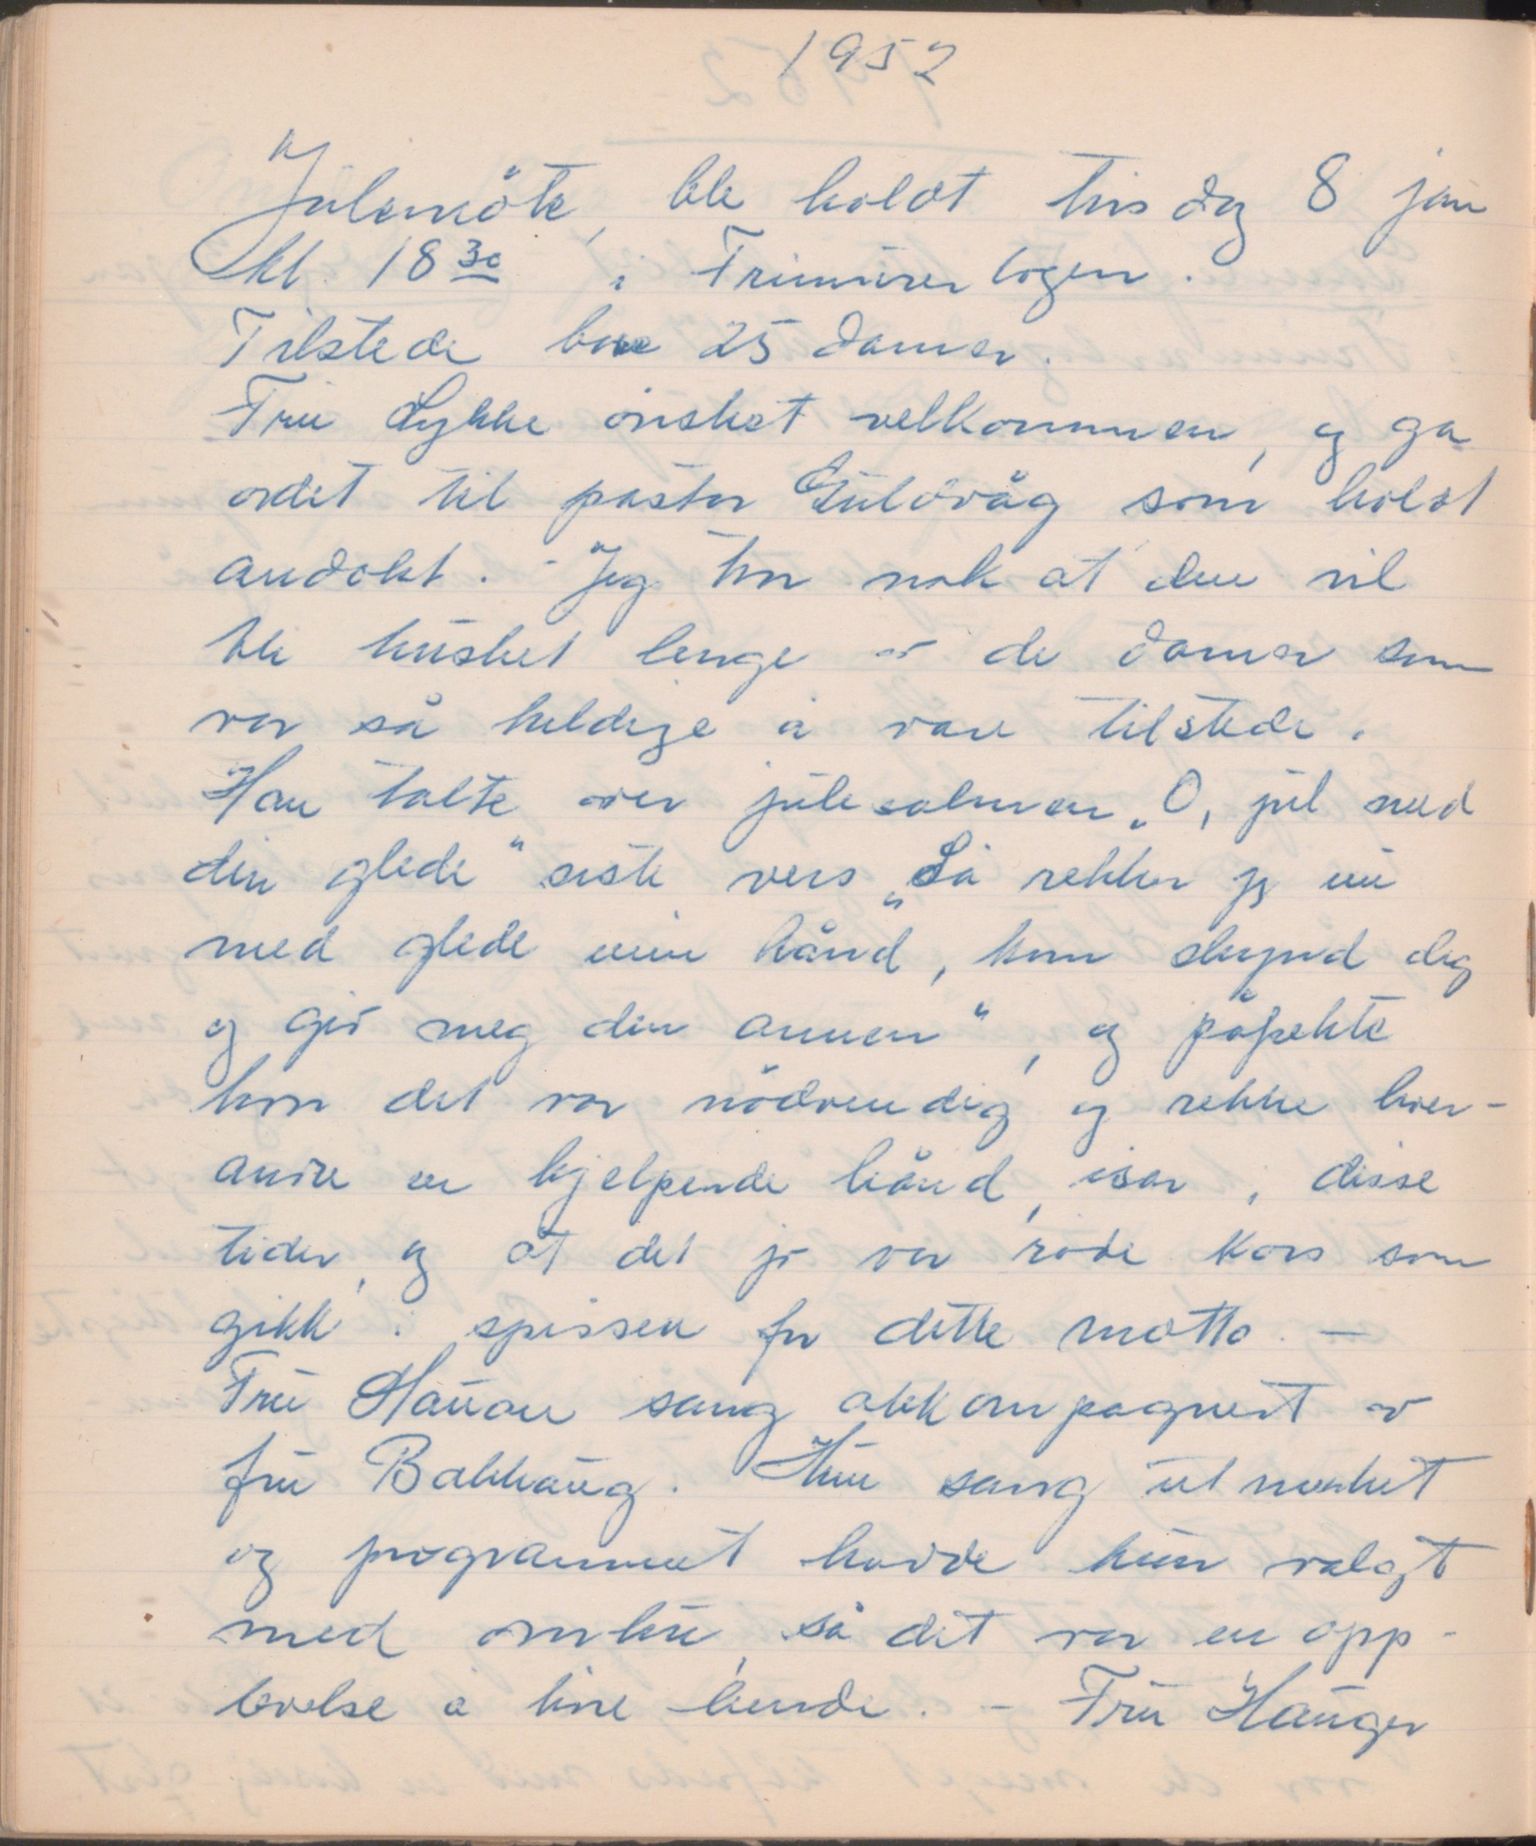 1952
Julemöte, ble holdt tirsdag 8 jan
kl. 18 30 i Frimurerlogen.
Tilstede bare 25 damer.
Fru Lykke ønsket velkommen, og ga
ordet til pastor Guldvåg som holdt
andakt. - Jeg tror nok at den vil
bli husket lenge av de damer som
var så heldige å være tilstede.
Han talte over julesalmen „O, jul med
din glede" siste vers „Så rekker jeg nu
med glede min hånd, kom skynd deg
og gid meg din annen", og påpekte
hvor det var nödvendig og rekke hver-
andre en hjelpende hånd, især i disse
tider, og at det jo var röde kors som
gikk i spissen for dette motto. -
Fru Hanan sang akkompagnert av
fru Bakkaug. Hun sang utmerket
og programmet havde hun valgt
med omhu, så det var en opp-
levelse å höre hende. - Fru Hauger